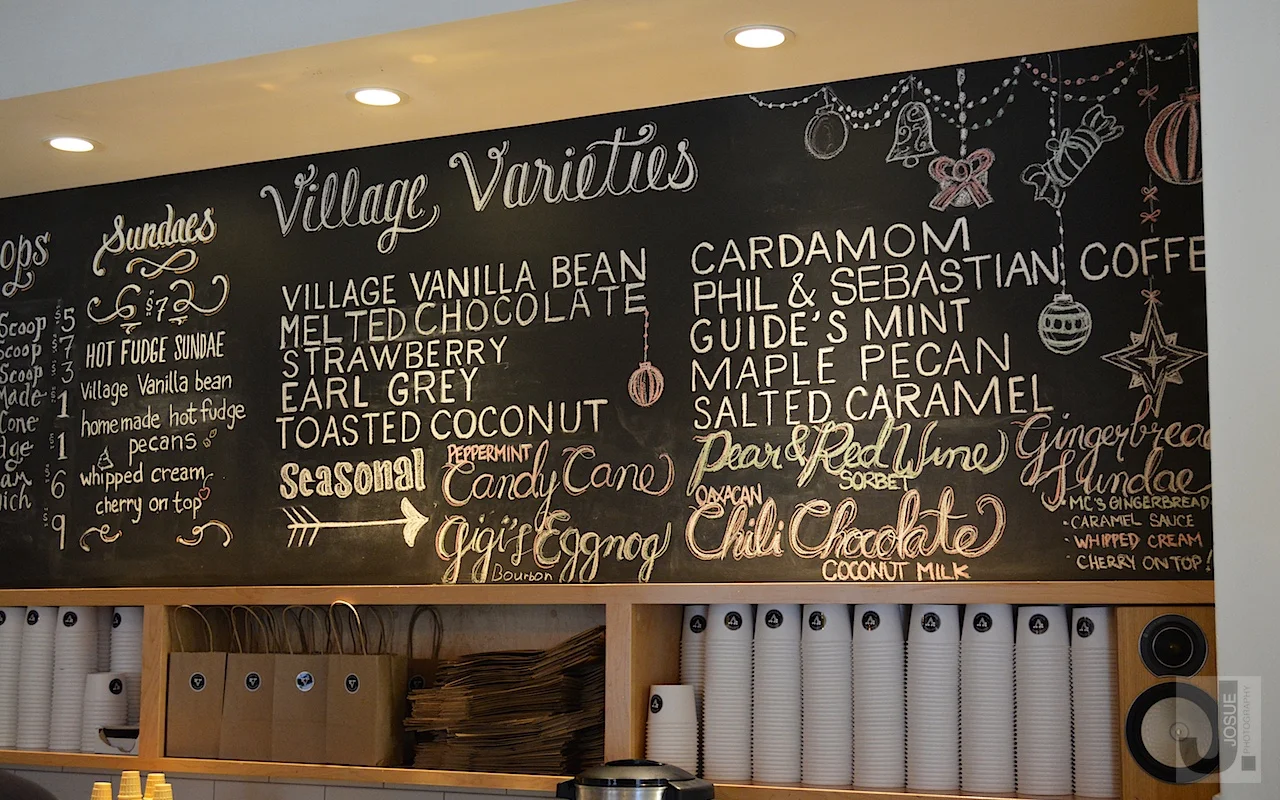 ops
Scoop 5
Scoop 7
Scoop 3
Made
Cone 1
dge 1
am 6
wich
9
Sundaes
6 $7 2
HOT FUDGE SUNDAE
Village Vanilla bean
homemade hot fudge
pecans
whipped cream
cherry on top
Village Varieties
VILLAGE VANILLA BEAN
MELTED CHOCOLATE
STRAWBERRY
EARL GREY
TOASTED COCONUT
CARDAMOM
PHIL & SEBASTIAN COFFE
GUIDE'S MINT
MAPLE PECAN
SALTED CARAMEL
Seasonal
PEPPERMINT
Candy Cane
Gigi's Eggnog
Bourbon
Pear & Red Wine
SORBET
OAXACAN
Chili Chocolate
COCONUT MILK
Gingerbread
Sundae
• MC'S GINGERBREAD
• CARAMEL SAUCE
• WHIPPED CREAM
• CHERRY ON TOP!
J.
JOSUE
PHOTOGRAPHY